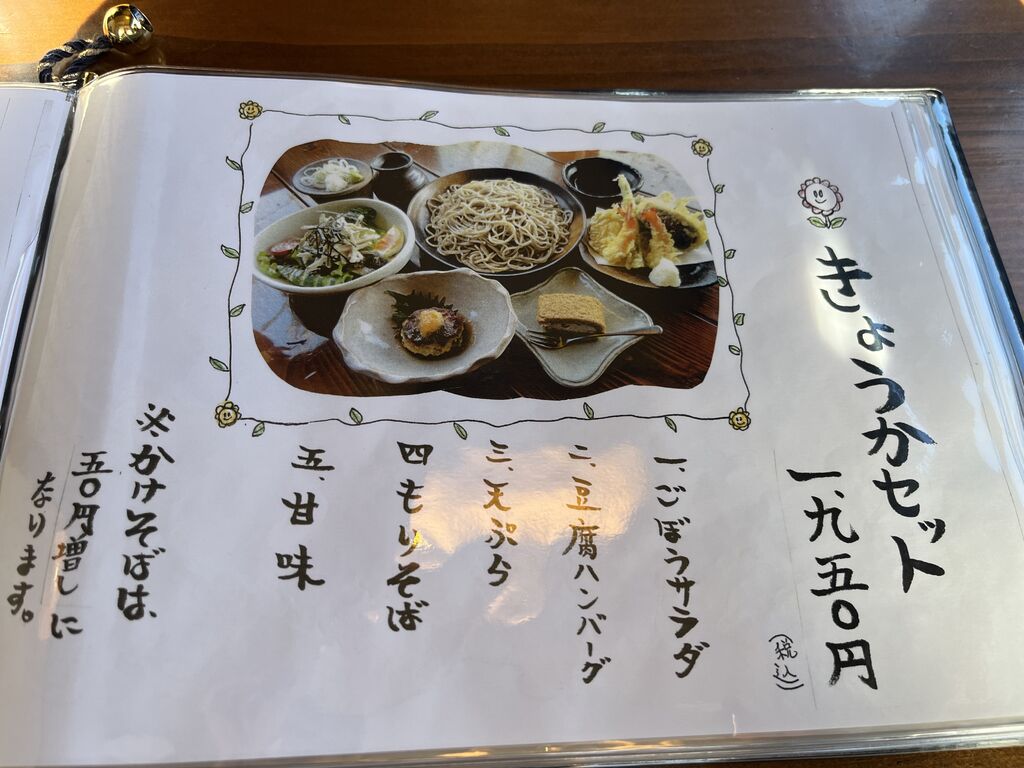 きょうかセット
一、九五〇円
(税込)
一、ごぼうサラダ
二、豆腐ハンバーグ
三、天ぷら
四 もりそば
五、甘味
※かけそばは、
五〇円増しに
なります。